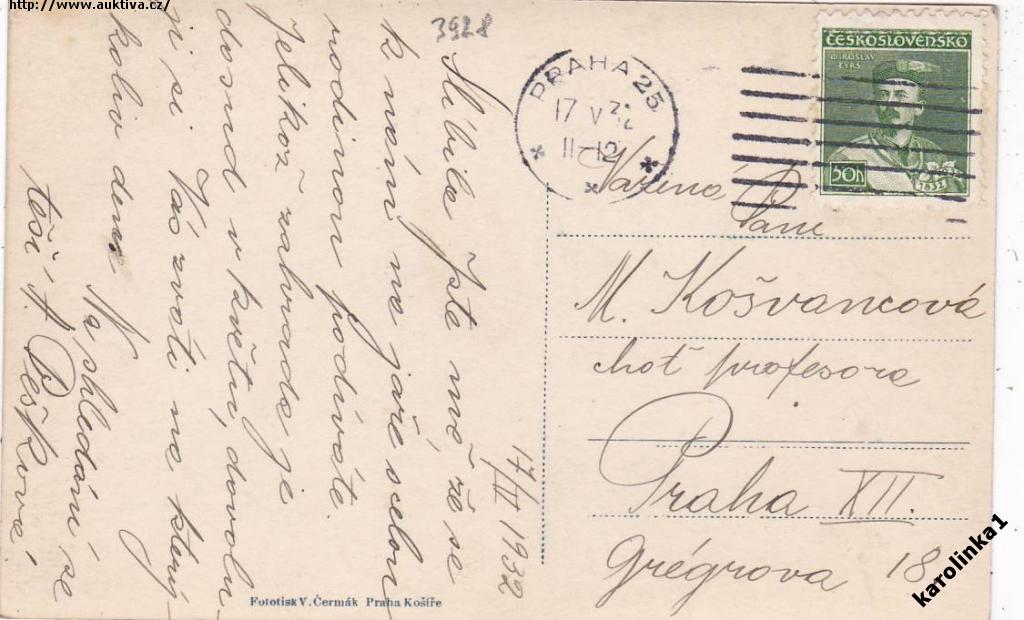 http://www.auktiva.cz/
3928
Slíbila Jste mně, že se
k nám na jaře s celou
rodinou podíváte.
Jelikož zahrada je
dosud v květu, dovolu
ji si Vás zváti na který
koliv den. Na shledání se
těší A. Pešková!
17/V 1932
PRAHA 25
17 V 32
11-12
ČESKOSLOVENSKO
MIROSLAV
TYRŠ
50h
1832
Vážená Paní
M. Košvancová
choť profesora
Praha XII.
Grégrova 18.
Fototisk V. Čermák Praha Košíře
karolinka1